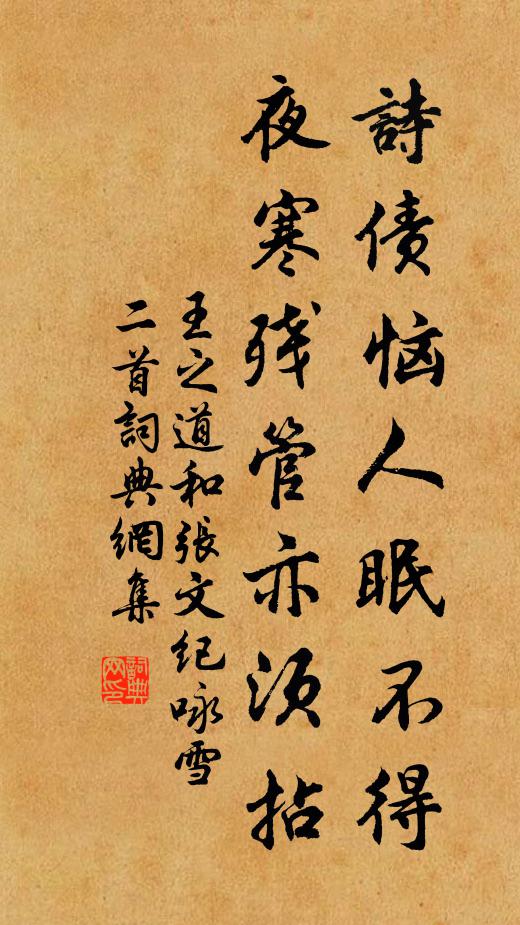 詩債恼人眠不得
夜寒残管亦須拈
王之道和張文纪咏雪
二首詞典網集
詞典网印